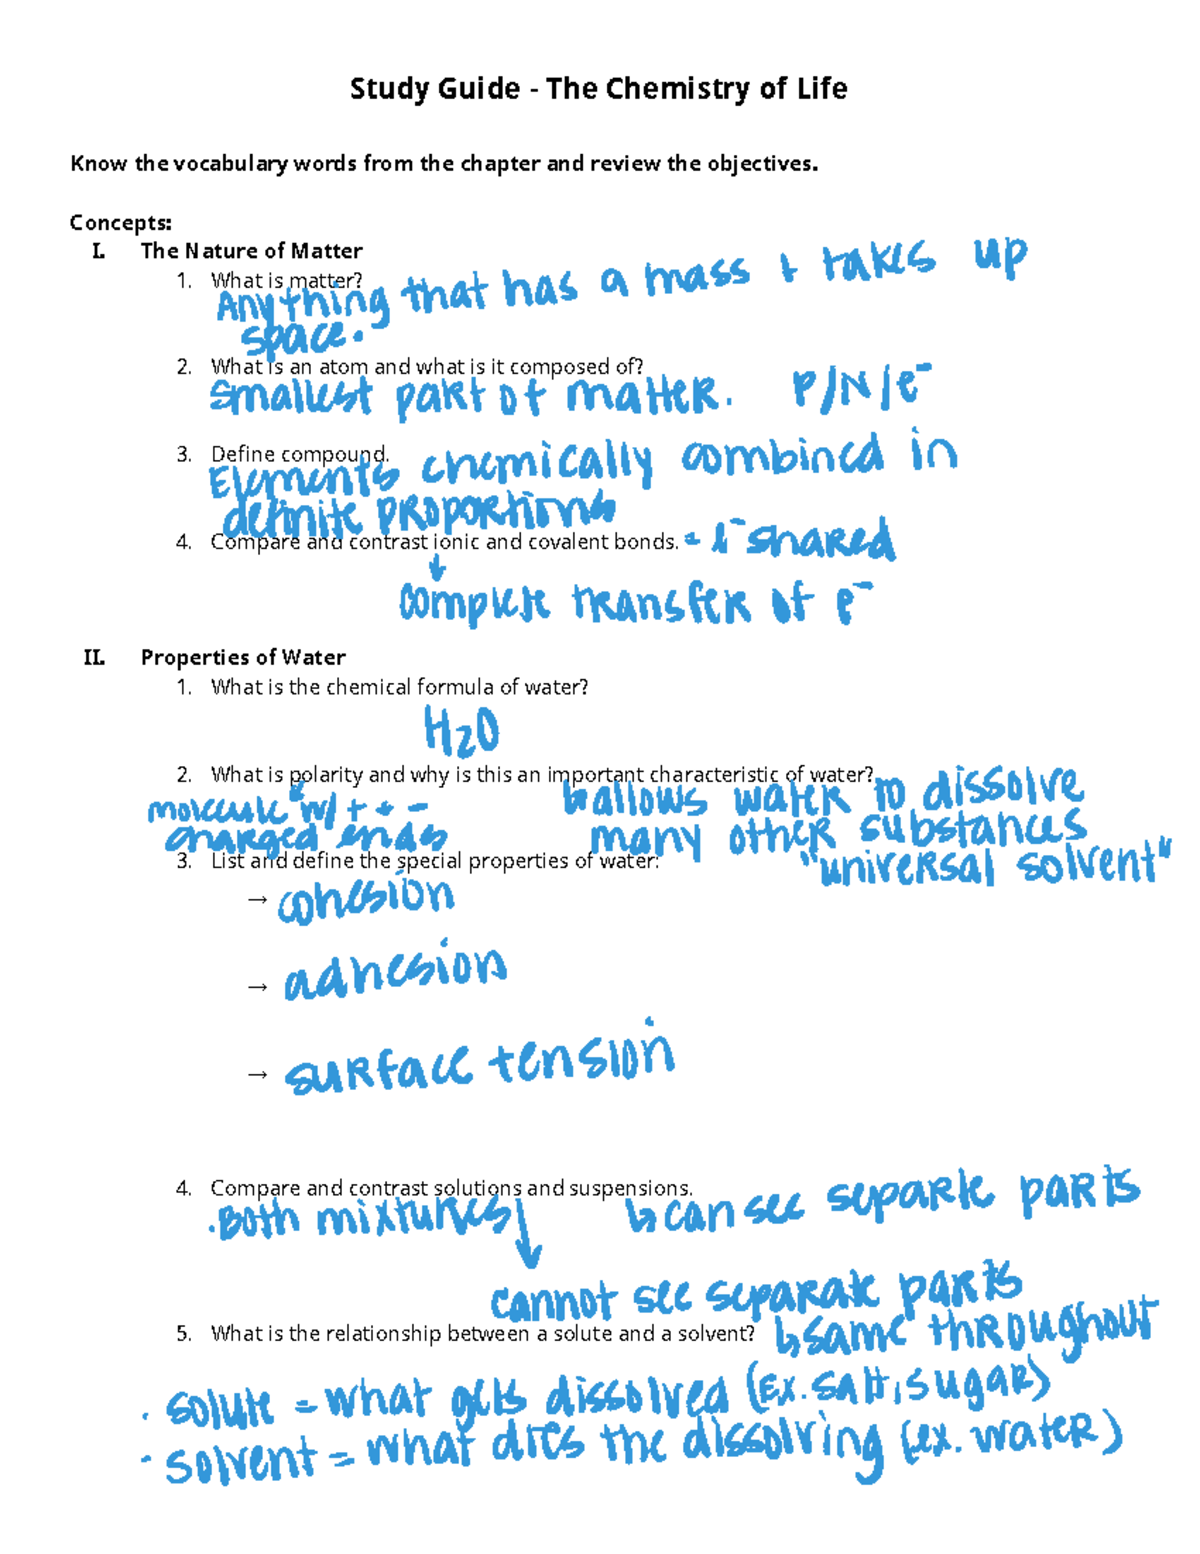 Study Guide - The Chemistry of Life
Know the vocabulary words from the chapter and review the objectives.
Concepts:
I. The Nature of Matter
1. What is matter?
Anything that has a mass + takes up
space.
2. What is an atom and what is it composed of?
smallest part of matter. P/N/e⁻
3. Define compound.
Elements chemically combined in
definite proportions
4. Compare and contrast ionic and covalent bonds. = e⁻ shared
↓
complete transfer of e⁻
II. Properties of Water
1. What is the chemical formula of water?
H2O
2. What is polarity and why is this an important characteristic of water?
molecule w/ + & - ↳ allows water to dissolve
charged ends many other substances
"universal solvent"
3. List and define the special properties of water:
→ cohesion
→ adhesion
→ surface tension
4. Compare and contrast solutions and suspensions.
· Both mixtures ↓ ↳ can see separate parts
cannot see separate parts
↳ same throughout
5. What is the relationship between a solute and a solvent?
· solute = what gets dissolved (Ex. salt, sugar)
· solvent = what does the dissolving (ex. water)